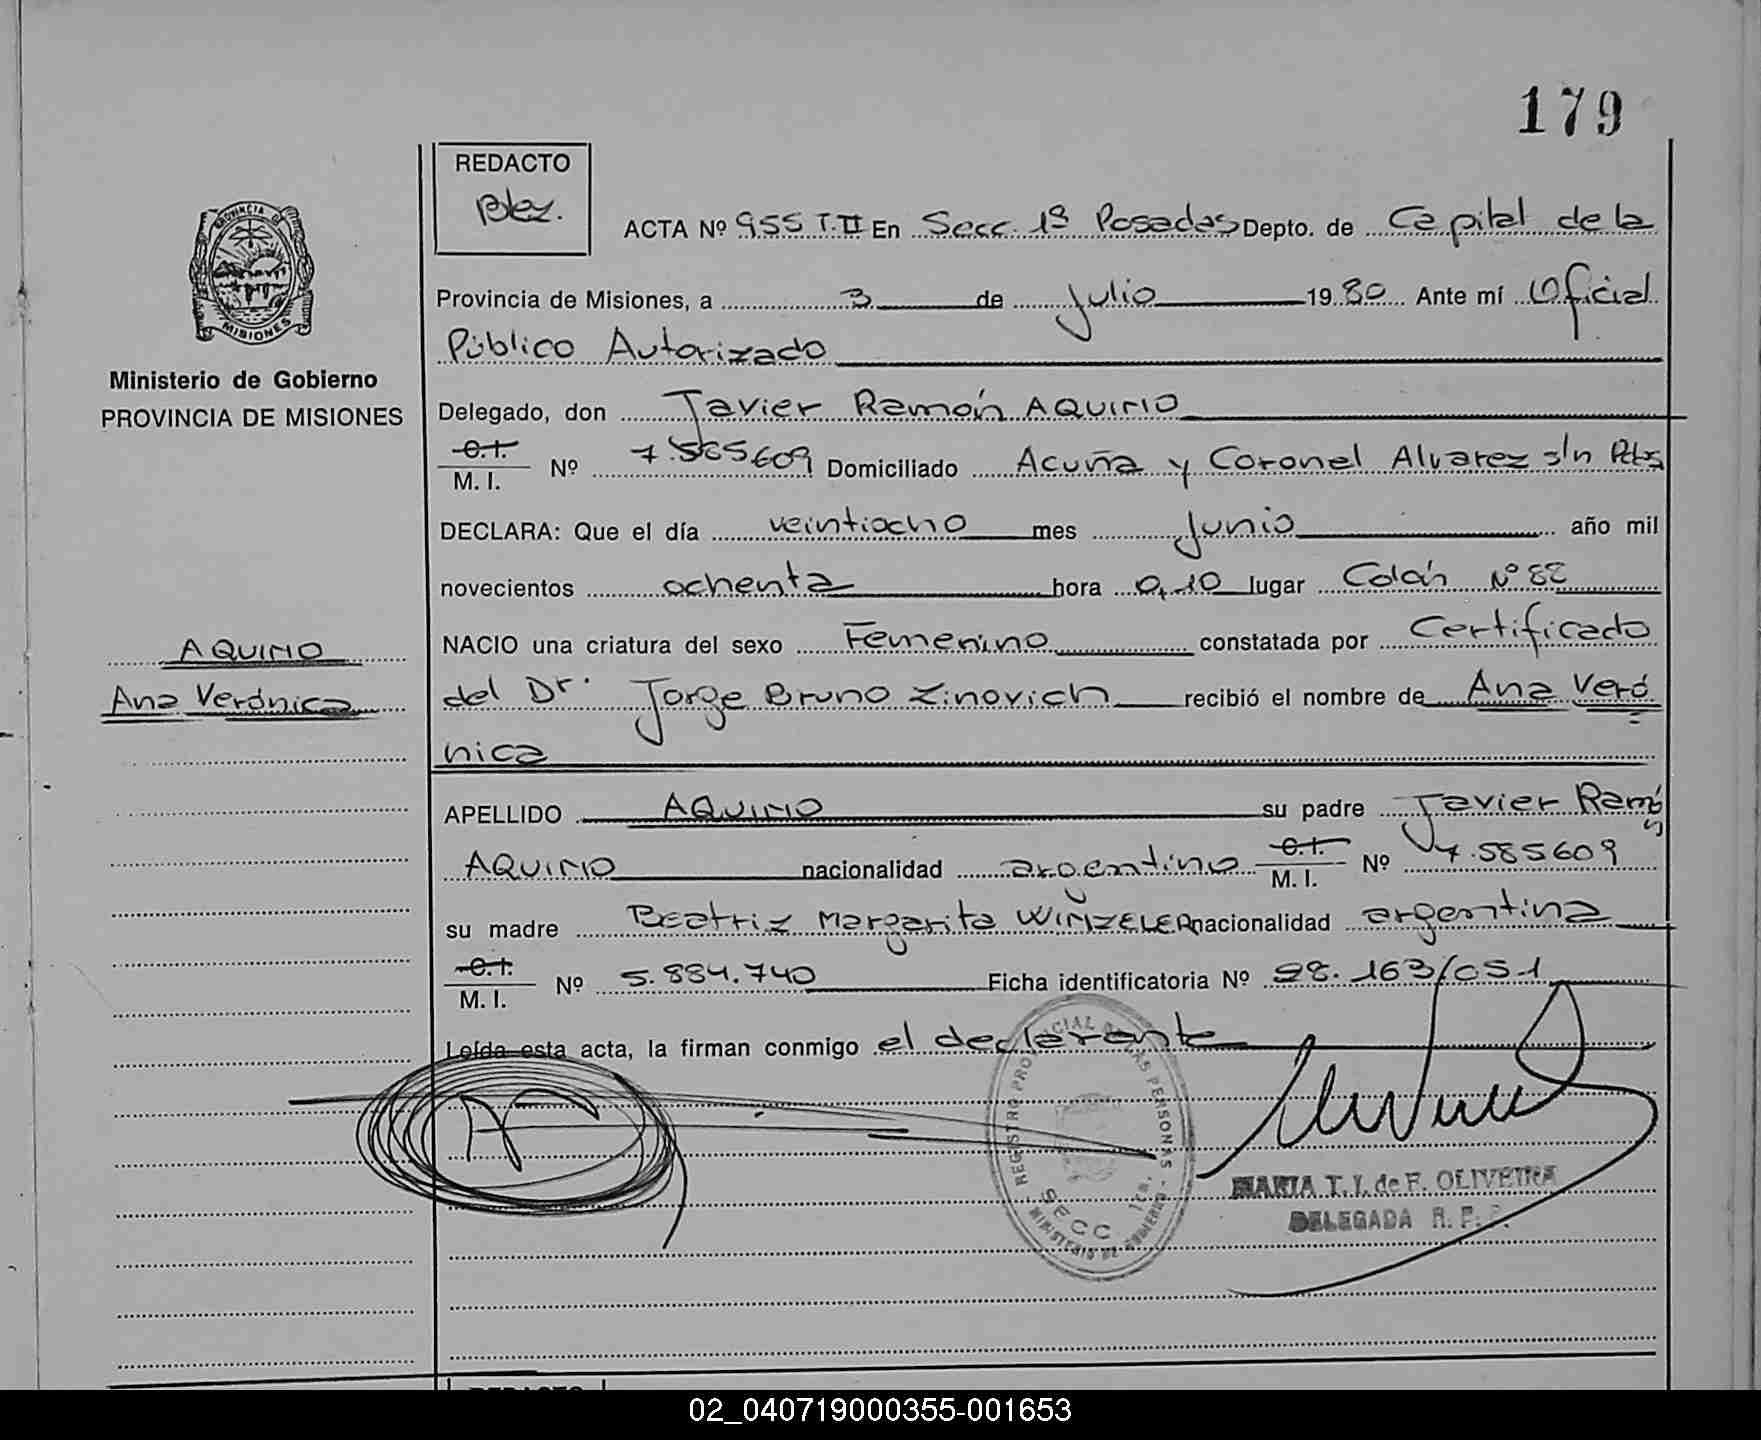 179
REDACTO
ACTA Nº 955 T.II En Secc. 1ª Posadas Depto. de Capital de la
Provincia de Misiones, a 3 de Julio 1980 Ante mí Oficial
Público Autorizado
Ministerio de Gobierno
PROVINCIA DE MISIONES
Delegado, don Javier Ramón AQUINO
C.I.
M. I. Nº 7.585609 Domiciliado Acuña y Coronel Alvarez s/n Pdas
DECLARA: Que el día veintiocho mes Junio año mil
novecientos ochenta hora 0,10 lugar Colón Nº 82
AQUINO
Ana Verónica
NACIO una criatura del sexo Femenino constatada por Certificado
del Dr. Jorge Bruno Zinovich recibió el nombre de Ana Veró
nica
APELLIDO AQUINO su padre Javier Ramón
AQUINO nacionalidad argentino C.I.
M. I. Nº 7.585609
su madre Beatriz Margarita WINZELER nacionalidad argentina
C.I.
M. I. Nº 5.884.740 Ficha identificatoria Nº 28.163/051
Leída esta acta, la firman conmigo el declarante
REGISTRO PROVINCIAL DE LAS PERSONAS
SECC 1ra.
MINISTERIO DE GOBIERNO
MARIA T. I. de F. OLIVEIRA
DELEGADA R. P. P.
REDACTO
02_040719000355-001653